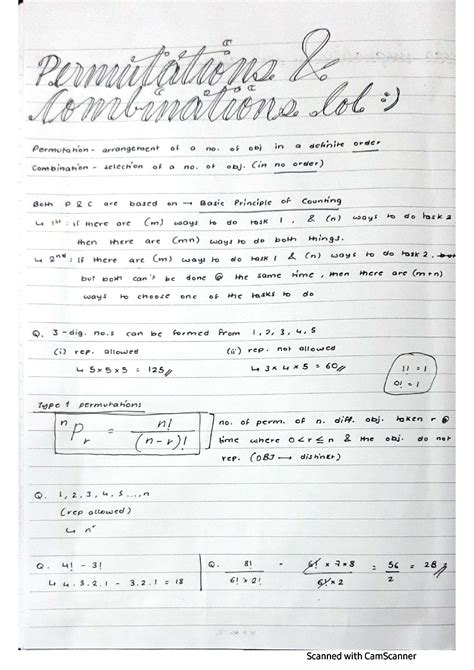 Permutations &
Combinations lol :)
Permutation - arrangement of a no. of obj in a definite order
Combination - selection of a no. of obj. (in no order)
Both P & C are based on → Basic Principle of Counting
↳ 1st : if there are (m) ways to do task 1 , & (n) ways to do task 2
then there are (mn) ways to do both things.
↳ 2nd : If there are (m) ways to do task 1 & (n) ways to do task 2, but
but both can't be done @ the same time , then there are (m+n)
ways to choose one of the tasks to do
Q. 3-dig. no.s can be formed from 1, 2, 3, 4, 5
(i) rep. allowed (ii) rep. not allowed
↳ 5 x 5 x 5 = 125 ↳ 3 x 4 x 5 = 60
1! = 1
0! = 1
Type 1 permutations
nPr = n! / (n-r)!
no. of perm. of n. diff. obj. taken r @
time where 0 < r ≤ n & the obj. do not
rep. (OBJ → distinct)
Q. 1, 2, 3, 4, 5 ..., n
(rep allowed)
↳ nr
Q. 4! - 3!
↳ 4.3.2.1 - 3.2.1 = 18
Q. 8! / 6! x 2! = 6! x 7 x 8 / 6! x 2 = 56 / 2 = 28
Scanned with CamScanner